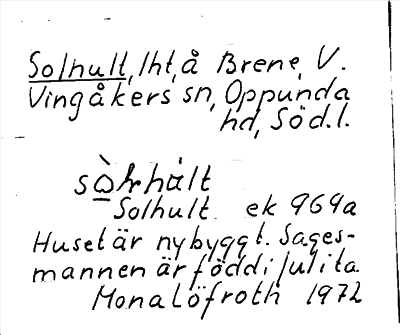 Solhult, lht, å Brene, V.
Vingåkers sn, Oppunda
hd, Söd.l.
Solhult ek 969a
Huset är nybyggt. Sages-
mannen är född i Julita
Mona Löfroth 1972